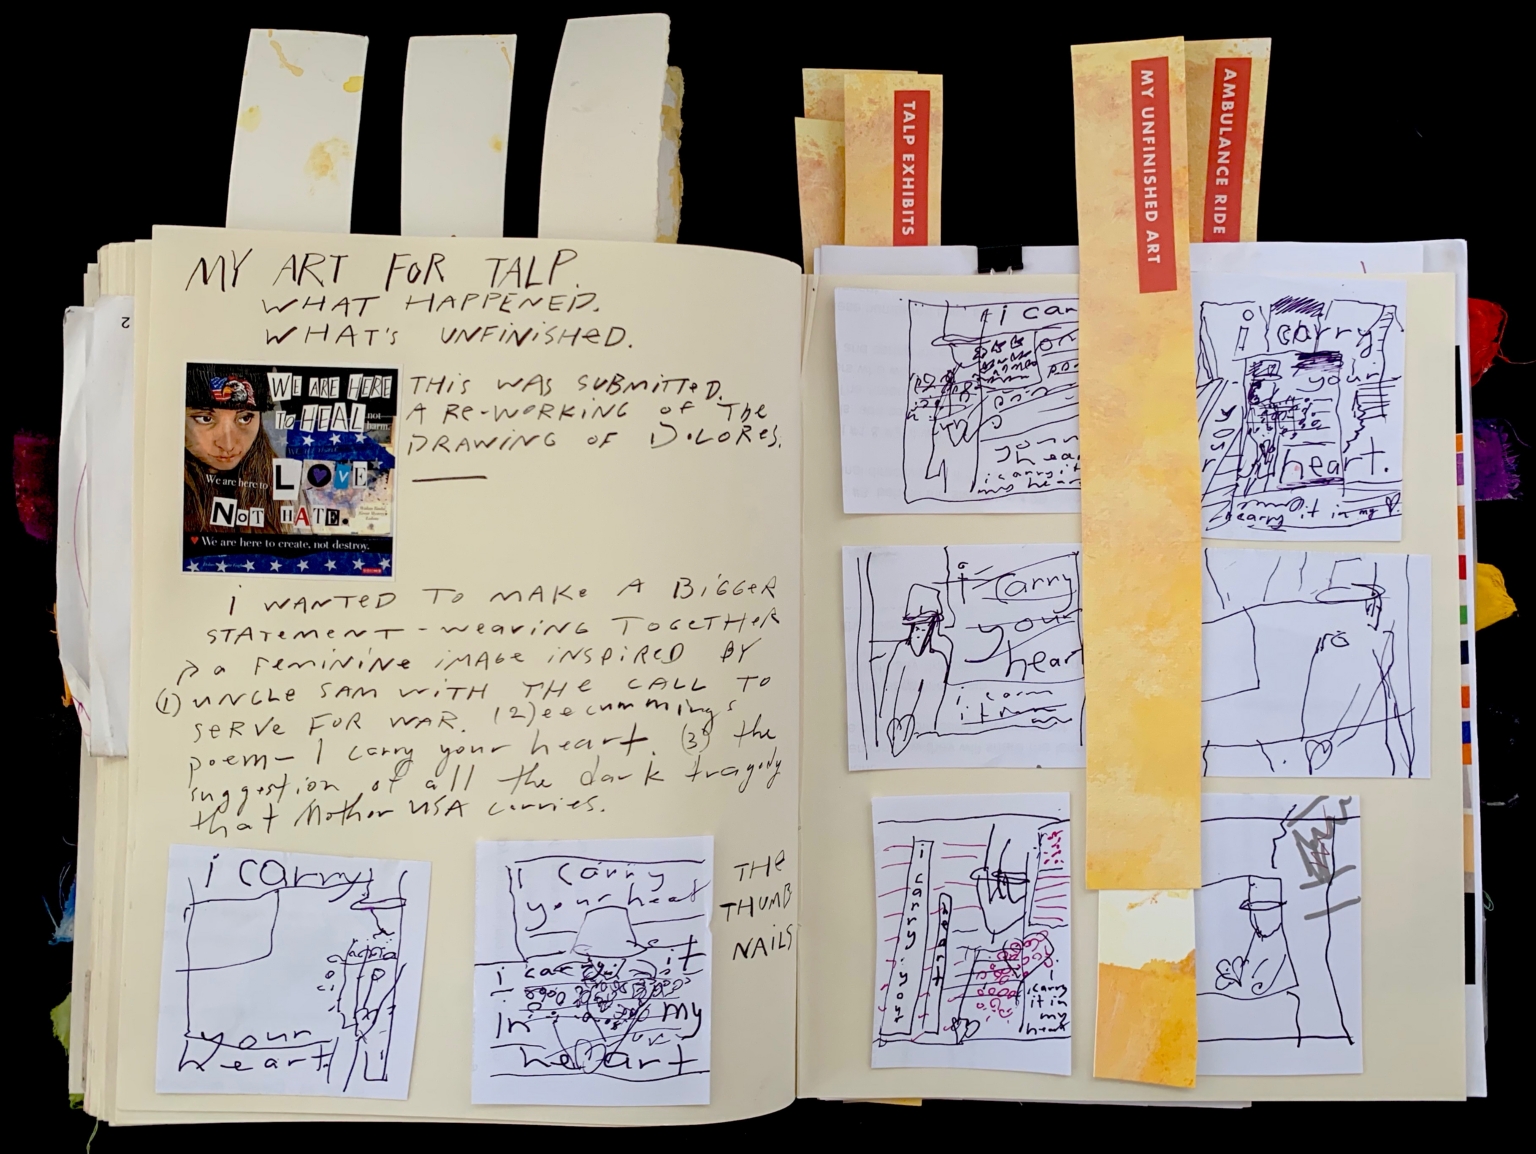 TALP EXHIBITS
MY UNFINISHED ART
AMBULANCE RIDE
2
MY ART FOR TALP.
WHAT HAPPENED.
WHAT'S UNFINISHED.
WE ARE HERE
TO HEAL not
harm.
We are here to LOVE
NOT HATE.
We are here to create, not destroy.
THIS WAS SUBMITTED.
A RE-WORKING OF THE
DRAWING OF DOLORES.
i WANTED TO MAKE A BIGGER
STATEMENT - WEAVING TOGETHER
a FEMININE IMAGE INSPIRED BY
(1) UNCLE SAM WITH THE CALL TO
SERVE FOR WAR. (2) ee cummings
poem - I carry your heart. (3) the
suggestion of all the dark tragedy
that Mother USA carries.
i carry
your
heart
i carry
your heat
it
i
in my
heart
THE
THUMB
NAILS
i car
your
hear
i carry it
my hear
i carry
your
your
heart.
carry it in my
i carry
your
heart
i carry your
heart
i carry
it in
my
heart